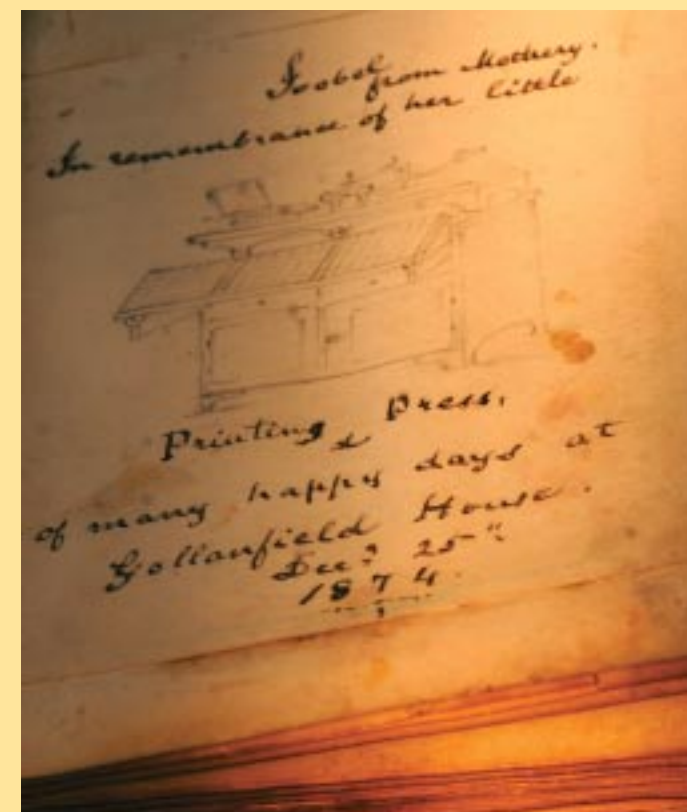 Isobel
from Mothery.
In remembrance of her little
Printing Press,
&
of many happy days at
Gollanfield House.
Decr 25th
1874